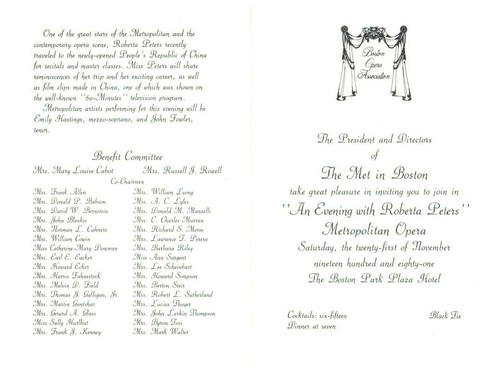 One of the great stars of the Metropolitan and the
contemporary opera scene, Roberta Peters recently
traveled to the newly-opened People's Republic of China
for recitals and master classes. Miss Peters will share
reminiscences of her trip and her exciting career, as well
as film clips made in China, one of which was shown on
the well-known "60-Minutes" television program.
Metropolitan artists performing for this evening will be
Emily Hastings, mezzo-soprano, and John Fowler,
tenor.
Benefit Committee
Mrs. Mary Louise Cabot Mrs. Russell J. Rowell
Co-Chairmen
Mrs. Frank Allen
Mrs. Donald P. Babson
Mrs. David W. Bernstein
Mrs. John Blaakie
Mrs. Norman L. Cahners
Mrs. William Cowin
Miss Catherine-Mary Donovan
Mrs. Earl E. Eacker
Mrs. Howard Eckes
Mrs. Harris Fahnestock
Mrs. Melvin D. Field
Mrs. Thomas J. Galligan, Jr.
Mrs. Martin Gantshar
Mrs. Gerard A. Glass
Miss Sally Hurlbut
Mrs. Frank J. Kenney
Mrs. William Laing
Mrs. A. C. Lyles
Mrs. Donald M. Manzelli
Mrs. C. Charles Marran
Mrs. Richard S. Morse
Mrs. Lawrence T. Perera
Mrs. Barbara Riley
Miss Amy Sargent
Mrs. Lee Scheinbart
Mrs. Howard Simpson
Mrs. Berton Steir
Mrs. Robert L. Sutherland
Mrs. Lucius Thayer
Mrs. John Larkin Thompson
Mrs. Byron Tosi
Mrs. Mark Walter
Boston
Opera
Association
The President and Directors
of
The Met in Boston
take great pleasure in inviting you to join in
"An Evening with Roberta Peters"
Metropolitan Opera
Saturday, the twenty-first of November
nineteen hundred and eighty-one
The Boston Park Plaza Hotel
Cocktails: six-fifteen Black Tie
Dinner at seven